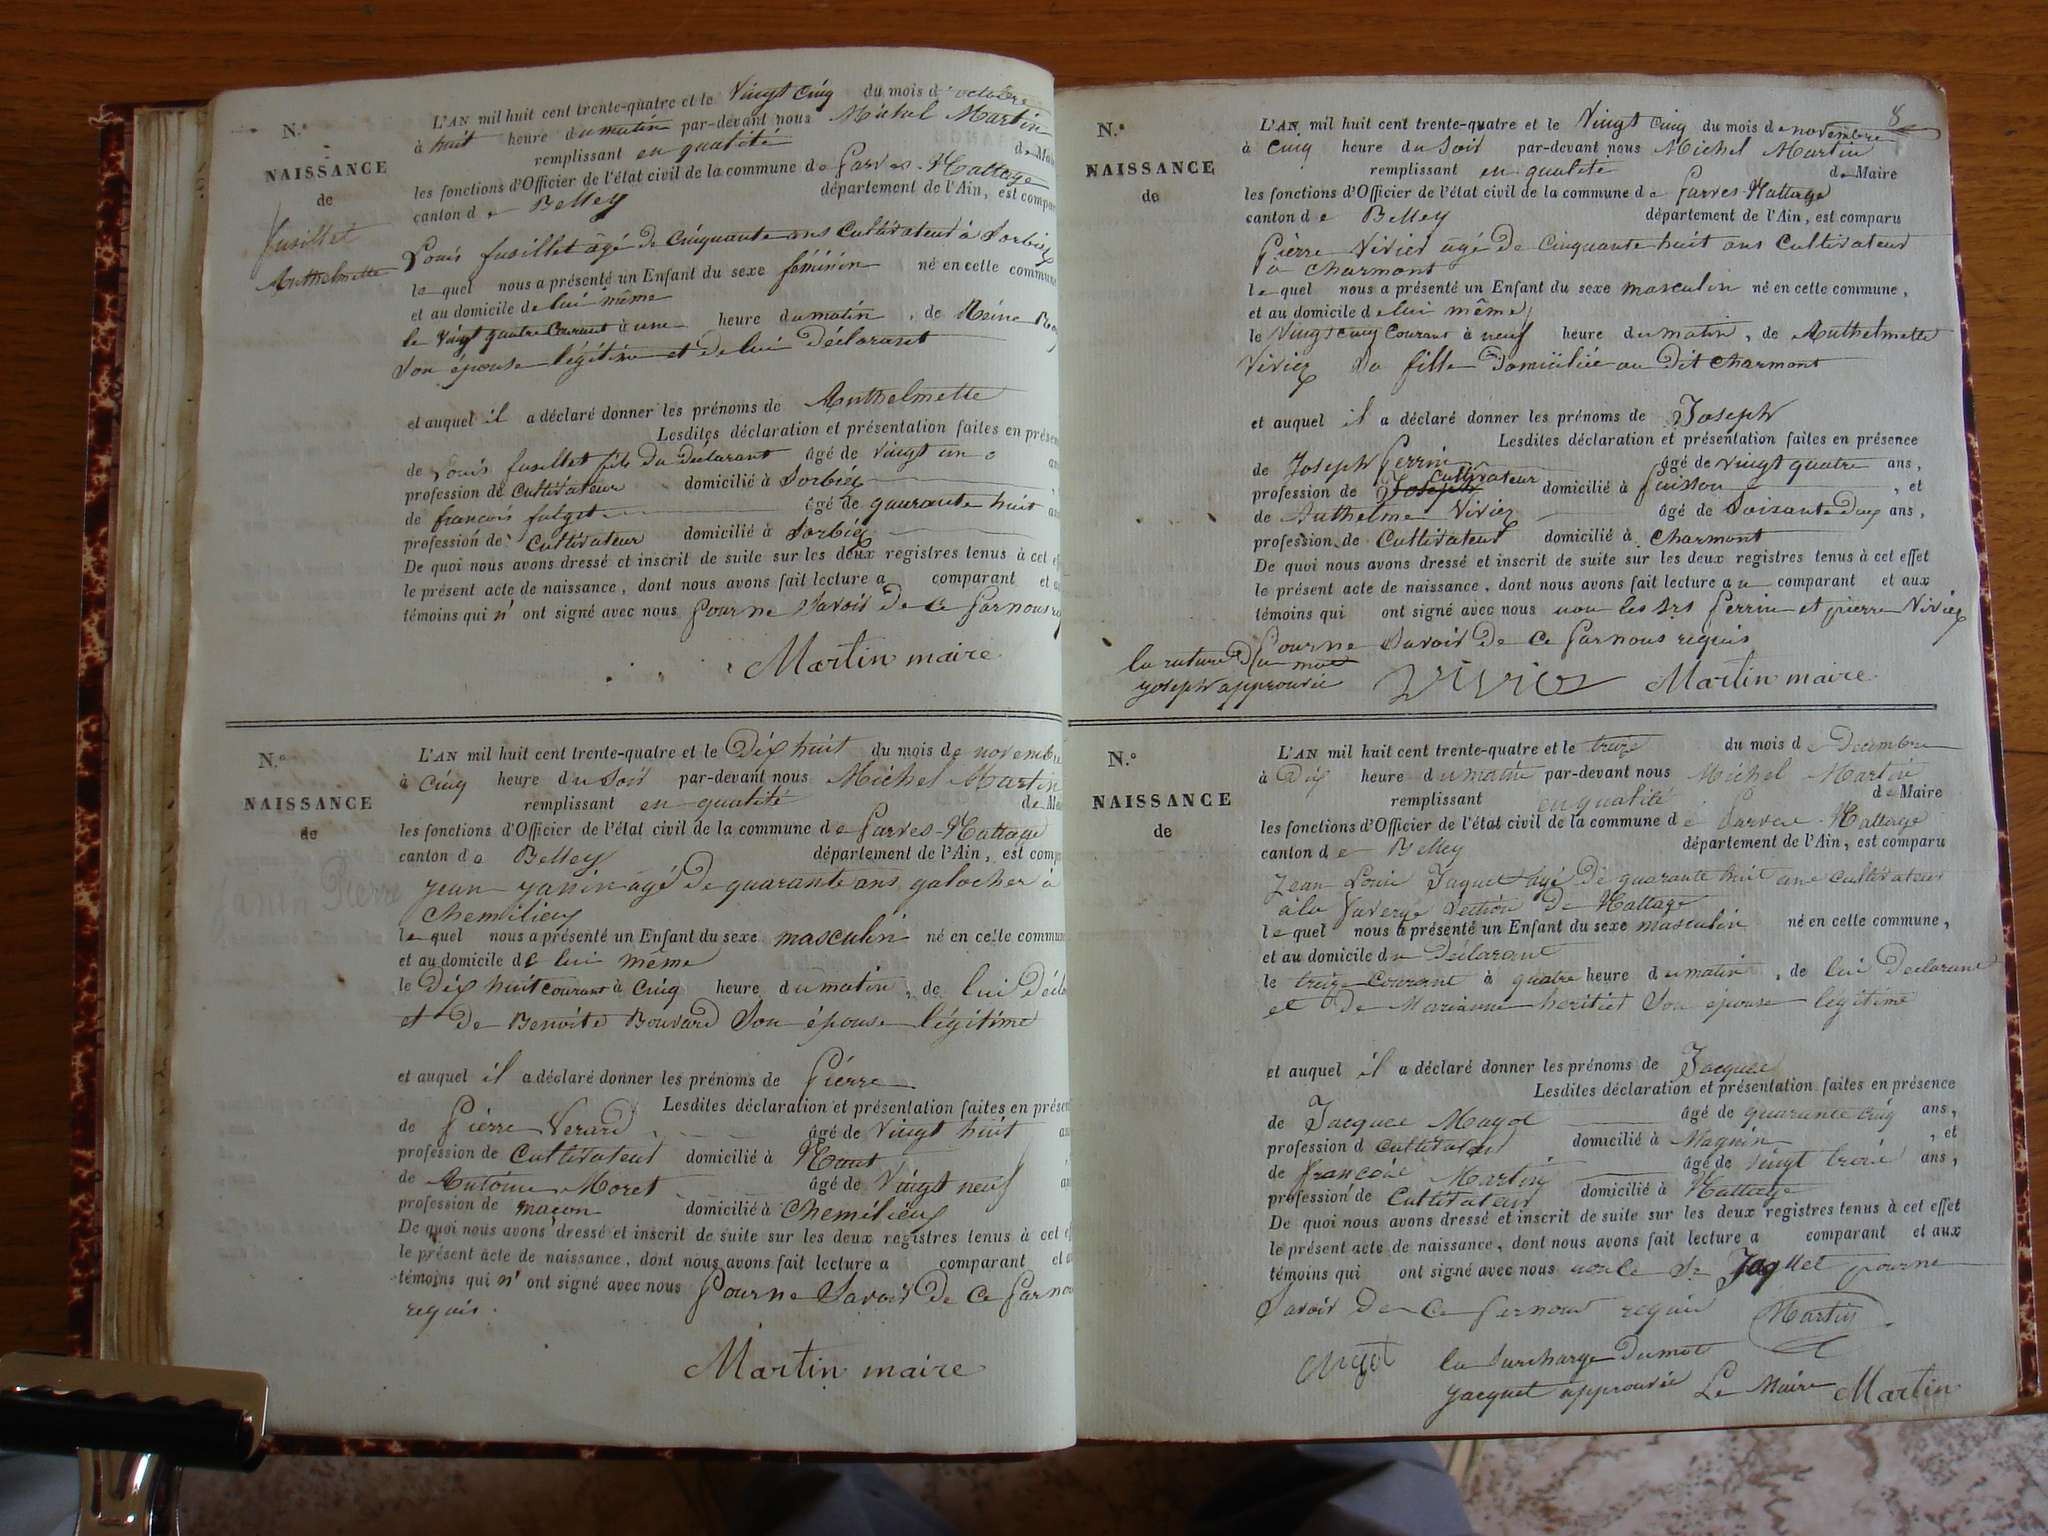 N.°
NAISSANCE
de
fusillet
Anthelmette
L'AN mil huit cent trente-quatre et le Vingt Cinq du mois d'octobre
à huit heure du matin par-devant nous Michel Martin
remplissant en qualité de Mai
les fonctions d'Officier de l'état civil de la commune de Parves-Nattage
canton de Belley département de l'Ain, est compar
Louis fusillet âgé de Cinquante ans Cultivateur à Sorbier
le quel nous a présenté un Enfant du sexe féminin né en cette commune
et au domicile de lui même
le Vingt quatre Courant à une heure du matin, de Reine
Son épouse légitime et de lui déclarant
et auquel il a déclaré donner les prénoms de Anthelmette
Lesdites déclaration et présentation faites en présen
de Louis fusillet fils du déclarant âgé de Vingt un an
profession de Cultivateur domicilié à Sorbier
de françois âgé de quarante huit an
profession de Cultivateur domicilié à Sorbier
De quoi nous avons dressé et inscrit de suite sur les deux registres tenus à cet ef
le présent acte de naissance, dont nous avons fait lecture a comparant et au
témoins qui n'ont signé avec nous Pour ne Savoir de ce par nous re
Martin maire
N.°
NAISSANCE
de
Janin Pierre
L'AN mil huit cent trente-quatre et le Dix huit du mois de novembre
à Cinq heure du Soir par-devant nous Michel Martin
remplissant en qualité de Mai
les fonctions d'Officier de l'état civil de la commune de Parves-Nattage
canton de Belley département de l'Ain, est compa
Jean Janin âgé de quarante ans galocher à
Chemilieu
le quel nous a présenté un Enfant du sexe masculin né en cette commun
et au domicile de lui même
le Dix huit courant à Cinq heure du matin, de lui décla
et de Benoite Bouvard Son épouse légitime
et auquel il a déclaré donner les prénoms de Pierre
Lesdites déclaration et présentation faites en présen
de Pierre Verard âgé de Vingt huit an
profession de Cultivateur domicilié à
de Antoine Moret âgé de Vingt neuf an
profession de maçon domicilié à Chemilieu
De quoi nous avons dressé et inscrit de suite sur les deux registres tenus à cet ef
le présent acte de naissance, dont nous avons fait lecture a comparant et a
témoins qui n'ont signé avec nous Pour ne Savoir de ce par nou
requis.
Martin maire
8
N.°
NAISSANCE
de
L'AN mil huit cent trente-quatre et le Vingt Cinq du mois de novembre
à Cinq heure du Soir par-devant nous Michel Martin
remplissant en qualité de Maire
les fonctions d'Officier de l'état civil de la commune de Parves-Nattage
canton de Belley département de l'Ain, est comparu
Pierre Vivier âgé de Cinquante huit ans Cultivateur
à Charmont
le quel nous a présenté un Enfant du sexe masculin né en cette commune,
et au domicile de lui même,
le Vingt Cinq Courant à neuf heure du matin, de Anthelmette
Vivier Sa fille Domiciliée au Dit Charmont
et auquel il a déclaré donner les prénoms de Joseph
Lesdites déclaration et présentation faites en présence
de Joseph Perrin âgé de Vingt quatre ans,
profession de Joseph Cultivateur domicilié à , et
de Anthelme Vivier âgé de Soixante Dix ans,
profession de Cultivateur domicilié à Charmont
De quoi nous avons dressé et inscrit de suite sur les deux registres tenus à cet effet
le présent acte de naissance, dont nous avons fait lecture au comparant et aux
témoins qui ont signé avec nous non les Srs Perrin et pierre Vivier
Pour ne Savoir de ce par nous requis
la rature du mot
joseph approuvée Vivier Martin maire
N.°
NAISSANCE
de
L'AN mil huit cent trente-quatre et le treize du mois de Décembre
à Dix heure du matin par-devant nous Michel Martin
remplissant en qualité de Maire
les fonctions d'Officier de l'état civil de la commune de Parves-Nattage
canton de Belley département de l'Ain, est comparu
Jean Louis Jaquet âgé de quarante huit ans Cultivateur
à la Section de Nattage
le quel nous a présenté un Enfant du sexe masculin né en cette commune,
et au domicile du Déclarant
le treize Courant à quatre heure du matin, de lui Déclarant
et de Marianne heritier Son épouse légitime
et auquel il a déclaré donner les prénoms de Jacques
Lesdites déclaration et présentation faites en présence
de Jacques Mugot âgé de quarante Cinq ans,
profession d Cultivateur domicilié à Magnin , et
de françois Martin âgé de Vingt trois ans,
profession de Cultivateur domicilié à Nattage
De quoi nous avons dressé et inscrit de suite sur les deux registres tenus à cet effet
le présent acte de naissance, dont nous avons fait lecture a comparant et aux
témoins qui ont signé avec nous non le Sr Jaquet pour ne
Savoir De Ce par nous requis Martin
Mugot la Surcharge Du mot
Jacquet approuvée Le Maire Martin